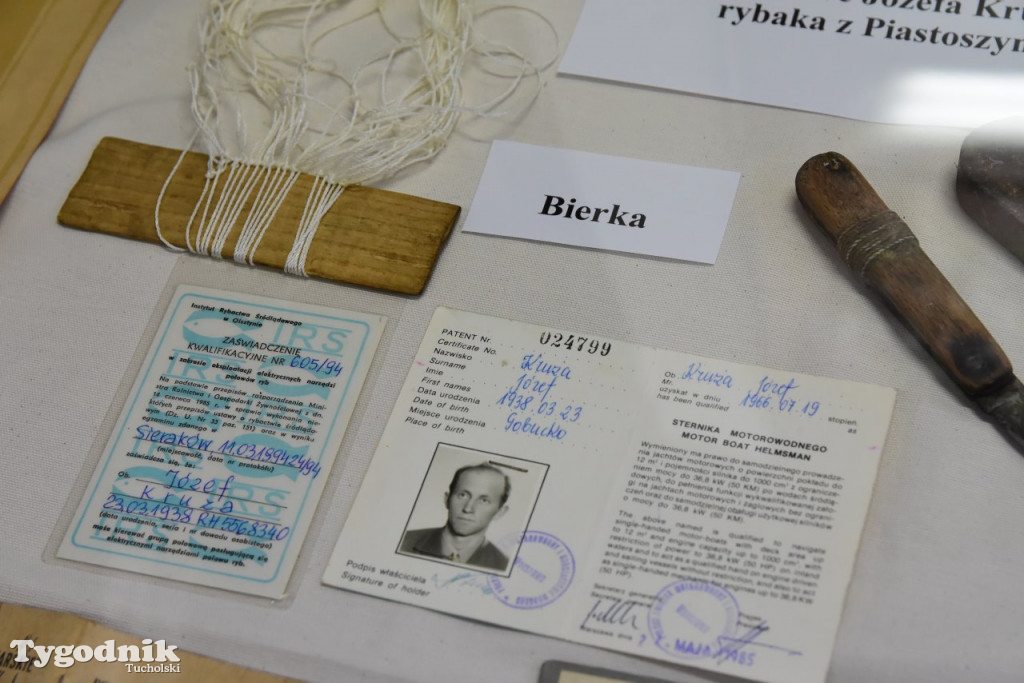 Józefa Kru
rybaka z Piastoszyn
Bierka
Instytut Rybactwa Śródlądowego
w Olsztynie
ZAŚWIADCZENIE
KWALIFIKACYJNE NR 605/94
w zakresie eksploatacji elektrycznych narzędzi
połowu ryb
Na podstawie przepisów rozporządzenia Mini-
stra Rolnictwa i Gospodarki Żywnościowej z dn.
14 czerwca 1985 r. w sprawie wykonania nie-
których przepisów ustawy o rybactwie śródlądo-
wym (Dz. U. Nr 33 poz. 151) oraz w wyniku
zdanego egzaminu w
Sieraków 11.03.1994 24/94
(miejscowość, data nr protokółu)
zaświadcza się, że:
Ob. Józef
Kruża
23.03.1938 RH 5568340
(data urodzenia, seria i nr dowodu osobistego)
może kierować grupą połowową posługującą się
elektrycznymi narzędziami połowu ryb.
PATENT Nr 024799
Certificate No.
Nazwisko Kruża
Surname
Imie Józef
First names
Data urodzenia 1938.03.23
Date of birth
Miejsce urodzenia
Place of birth
Podpis właściciela
Signature of holder
Ob. Kruża Józef
Mr
uzyskał w dniu 1966.07.19 stopień
has been qualified as
STERNIKA MOTOROWODNEGO
MOTOR BOAT HELMSMAN
Wymieniony ma prawo do samodzielnego prowadze-
nia jachtów motorowych o powierzchni pokładu do
12 m² i pojemności silnika do 1000 cm³ z ogranicze-
niem mocy do 36,8 kW (50 KM) po wodach śródlą-
dowych, do pełnienia funkcji wykwalifikowanej zało-
gi na jachtach motorowych i żaglowych bez ograni-
czeń oraz do samodzielnej obsługi użytkowej silników
o mocy do 36,8 kW (50 KM).
The above named is qualified to navigate
single-handed motor-boats with deck area up
to 12 m² and engine capacity up to 1000 cm³, with
restriction of power to 36,8 kW (50 HP), on inland
waters and to act as a qualified hand on engine driven
and sailing vessels without restriction, and also to act
as single-handed machinist of engines up to 36,8 kW
(50 HP).
Sekretarz generalny
Secretary
Warszawa dnia 7. MAJA 1985
Tygodnik
Tucholski